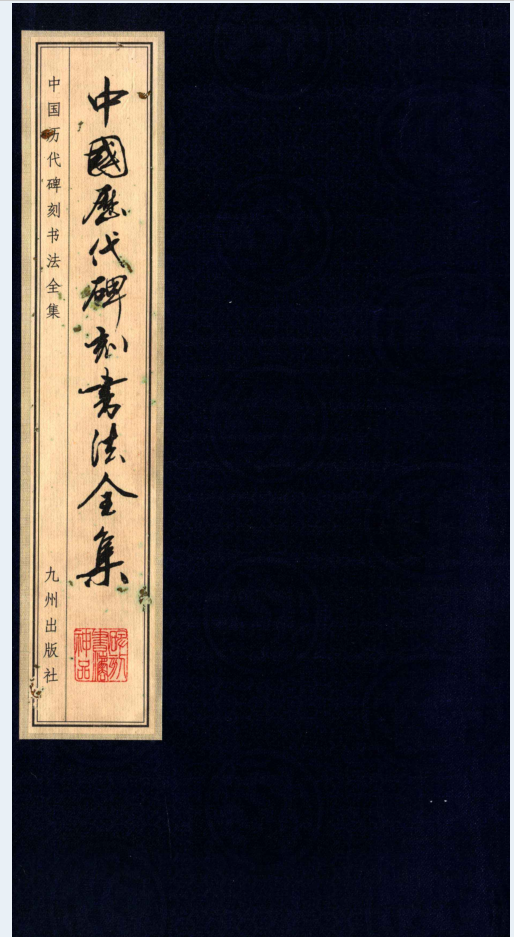 中國歷代碑刻書法全集
中国历代碑刻书法全集
九州出版社
書法
神品